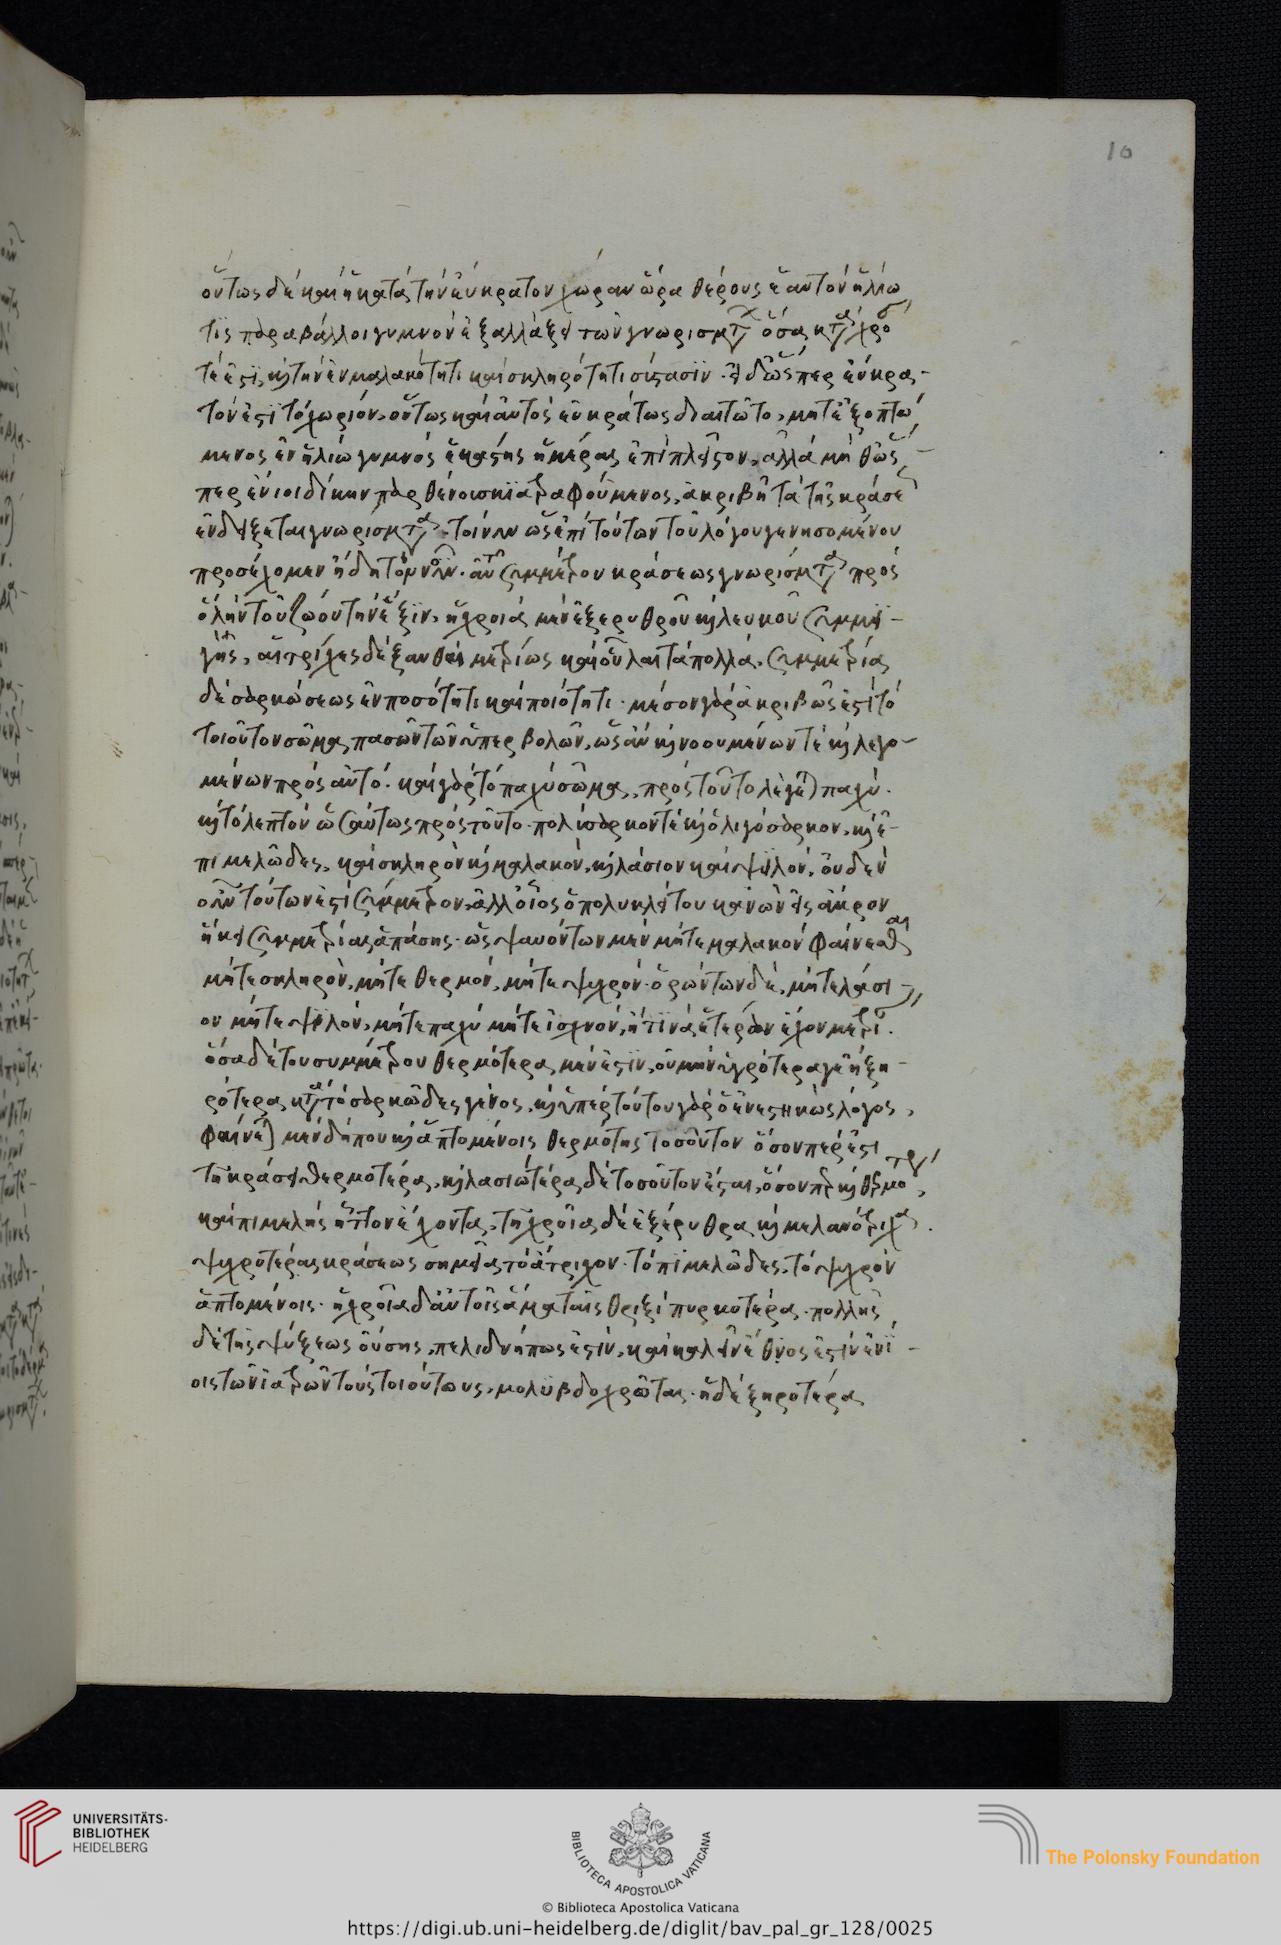 10
οὕτως δὲ καὶ ἡ κατὰ τὴν εὔκρατον χώραν ὥρα θέρους ἑαυτὸν ἡλίω
τὶς παραβάλλοι γυμνὸν ἐξαλλάξει τῶν γνωρισμάτων ὅσα κατὰ χρό
τέ ἐστι, καὶ τὴν ἐν μαλακότητι καὶ σκληρότητι σύστασιν. εἰ δ ὥσπερ εὔκρα-
τόν ἐστι τὸ χωρίον, οὕτως καὶ αὐτὸς εὐκράτως διαιτῶτο, μήτ ἐξοπτώ
μενος ἐν ἡλίω γυμνὸς ἑκάστης ἡμέρας ἐπιπλεῖστον, ἀλλὰ μὴ θ ὥσ-
περ ἔνιοι δίκην παρθένοι σκιατραφούμενος, ἀκριβῆ τὰ τῆς κράσε
ἐνδείξεται γνωρίσματα. τοίνυν ὡς ἐπὶ τούτων τοῦ λόγου γενησομένου
προσέχομεν ἤδη τὸν νοῦν. συμμέτρου κράσεως γνωρίσματα πρὸς
ὅλην τοῦ ζώου τὴν ἕξιν, ἡ χροιὰ μὲν ἐξ ἐρυθροῦ καὶ λευκοῦ συμμι-
γὴς, αἱ τρίχες δὲ ξανθαὶ μετρίως καὶ οὖλαι τὰ πολλά. συμμετρίας
δὲ σαρκώσεως ἐν ποσότητι καὶ ποιότητι. μέσον γὰρ ἀκριβῶς ἐστὶ τὸ
τοιοῦτον σῶμα, πασῶν τῶν ὑπερβολῶν, ὡς ἂν καὶ νοουμένων τὲ καὶ λεγο-
μένων πρὸς αὐτό. καὶ γὰρ τὸ παχὺ σῶμα, πρὸς τοῦτο λέγεται παχύ.
καὶ τὸ λεπτὸν ὡσαύτως πρὸς τοῦτο. πολύσαρκον τὲ καὶ ὀλιγόσαρκον, καὶ
πιμελῶδες, καὶ σκληρὸν καὶ μαλακόν, καὶ λάσιον καὶ ψιλόν. οὐδὲν
οὖν τούτων ἐστὶ σύμμετρον, ἀλλ οἷος ὁ πολυκλείτου κανὼν εἰς ἄκρον
ἥκει συμμετρίας ἁπάσης. ὡς ψαυόντων μὲν μήτε μαλακὸν φαίνεσθαι
μήτε σκληρὸν, μήτε θερμόν, μήτε ψυχρόν. ὁρώντων δὲ, μήτε λάσι-
ον μήτε ψιλόν, μήτε παχὺ μήτε ἰσχνόν, ἤ τινα ἑτέραν ἔχον
ὅσα δὲ τοῦ συμμέτρου θερμότερα μέν ἐστιν, οὐ μὴν ὑγρότερα γε ἢ ξη-
ρότερα κατὰ τὸ σαρκῶδες γένος, καὶ ὑπὲρ τούτου γὰρ ὁ ἐνεστηκὼς λόγος,
φαίνεται μὲν δήπου καὶ ἁπτομένοις θερμότης τοσοῦτον ὅσον περ ἐστι
τῆ κράσει θερμοτέρα, καὶ λασιωτέρα δὲ τοσοῦτον ἔσται, ὅσον περ καὶ θερμο
καὶ πιμελὴς ἧττον ἔχοντα. τῆ χροία δὲ ἐξέρυθρα καὶ μελανότριχα.
ψυχροτέρας κράσεως σημεῖα τὸ ἄτριχον. τὸ πιμελῶδες. τὸ ψυχρὸν
ἁπτομένοις. ἡ χροία δ αὐτοῖς ἅμα ταῖς θριξὶ πυρροτέρα. πολλῆς
δὲ τῆς ψύξεως οὔσης, πελιδνή πως ἐστίν, καὶ καλεῖν ἔθος ἐστὶν ἐνί-
οις τῶν ἰατρῶν τοὺς τοιούτους, μολυβδοχρῶτας. ἡ δὲ ξηροτέρα
UNIVERSITÄTS-
BIBLIOTHEK
HEIDELBERG
BIBLIOTECA APOSTOLICA VATICANA
The Polonsky Foundation
© Biblioteca Apostolica Vaticana
https://digi.ub.uni-heidelberg.de/diglit/bav_pal_gr_128/0025